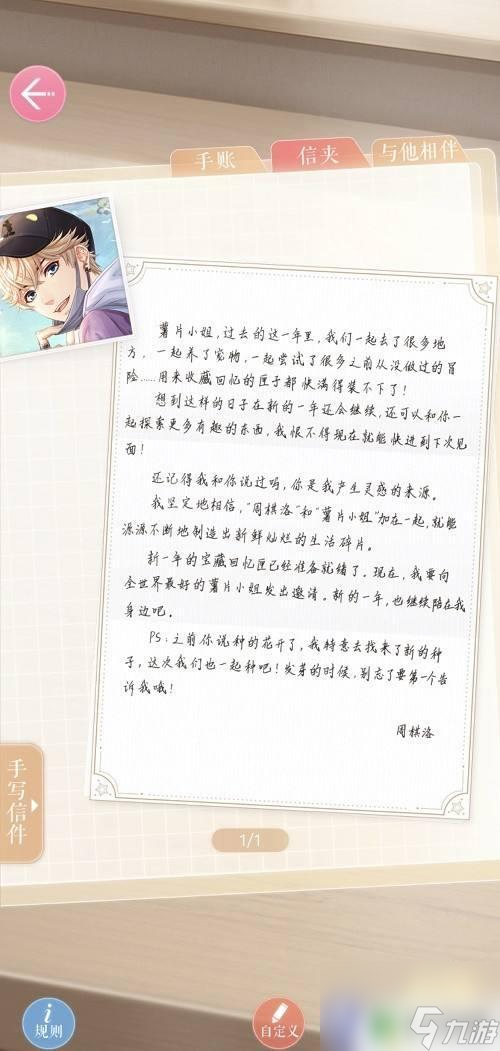 手账
信夹
与他相伴
薯片小姐，过去的这一年里，我们一起去了很多地
方，一起养了宠物，一起尝试了很多之前从没做过的冒
险……用来收藏回忆的匣子都快满得装不下了！
想到这样的日子在新的一年还会继续，还可以和你一
起探索更多有趣的东西，我恨不得现在就能快进到下次见
面！
还记得我和你说过吗，你是我产生灵感的来源。
我坚定地相信，“周棋洛”和“薯片小姐”加在一起，就能
源源不断地制造出新鲜灿烂的生活碎片。
新一年的宝藏回忆匣已经准备就绪了。现在，我要向
全世界最好的薯片小姐发出邀请。新的一年，也继续陪在我
身边吧。
PS：之前你说种的花开了，我特意去找来了新的种
子，这次我们也一起种吧！发芽的时候，别忘了要第一个告
诉我哦！
周棋洛
手写信件
1/1
规则
自定义
九游